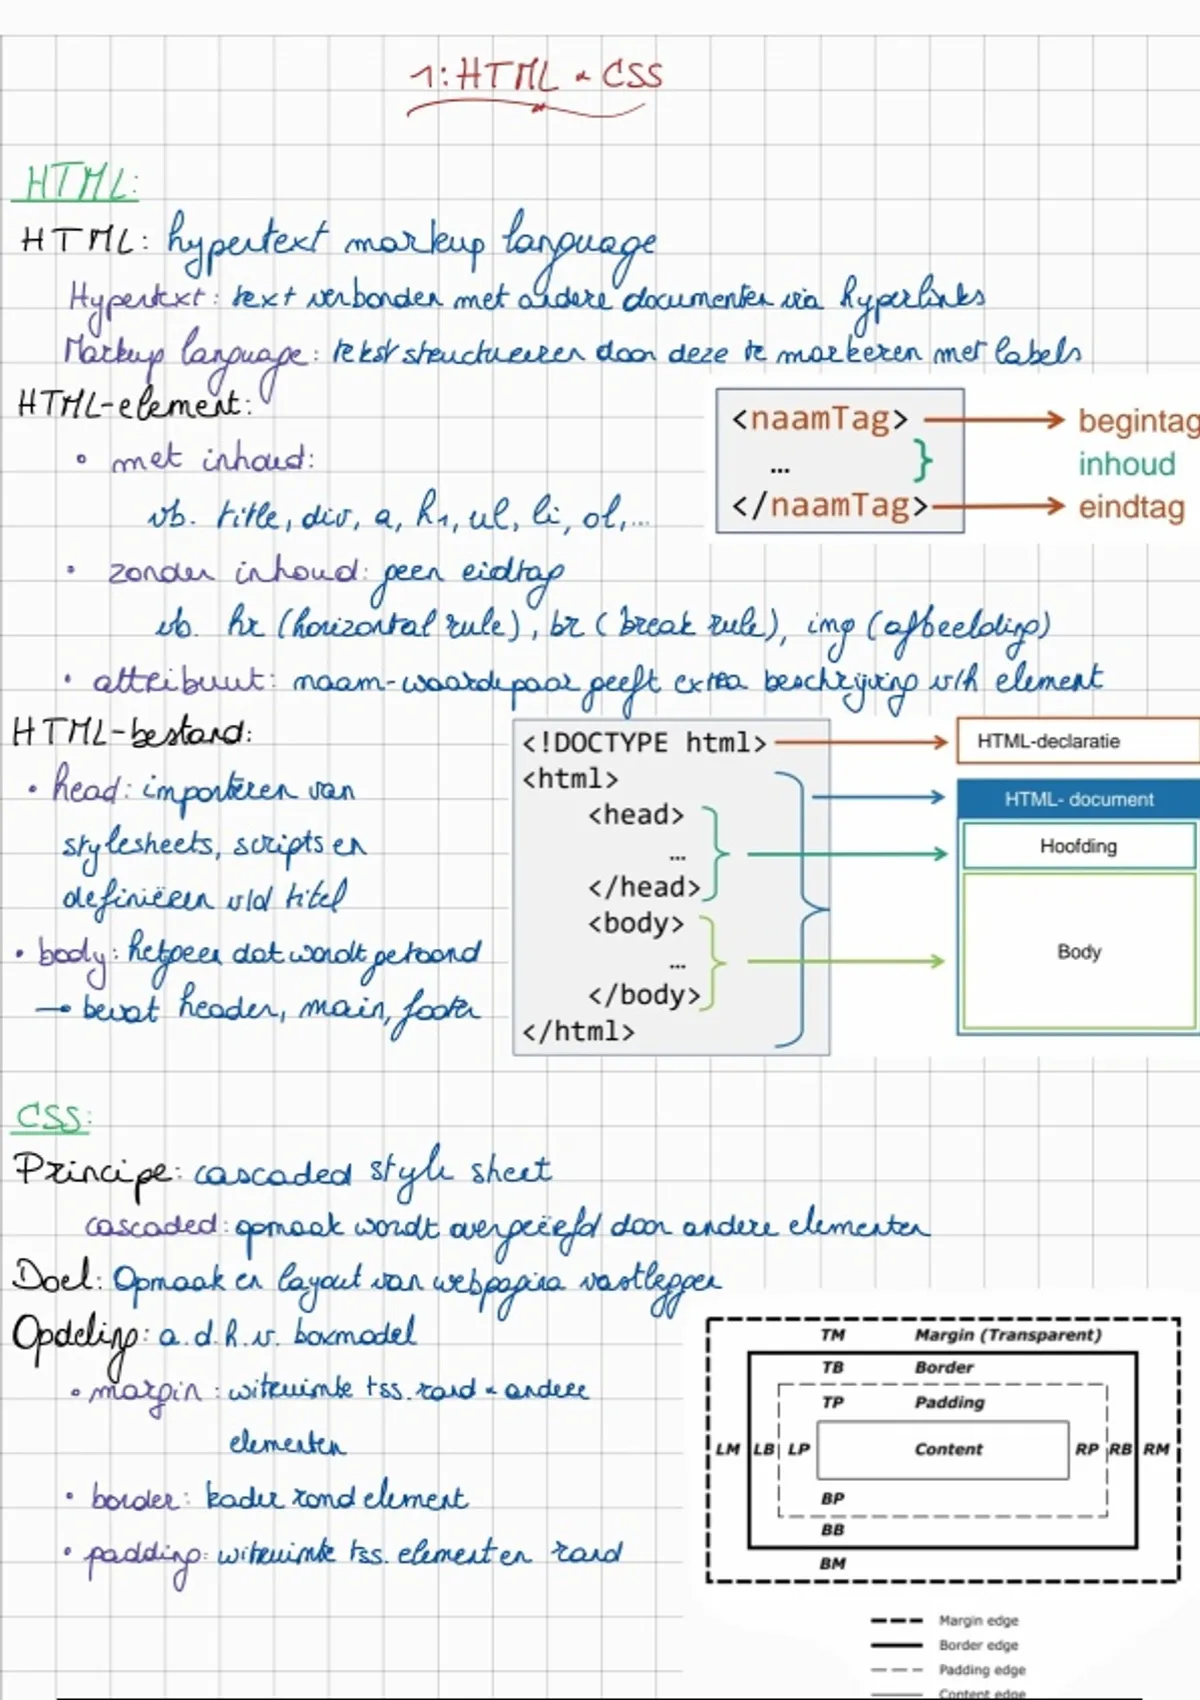 1: HTML & CSS
HTML:
HTML: hypertext markup language
Hypertext: text verbonden met andere documenten via hyperlinks
Markup language: tekst structureren door deze te markeren met labels
HTML-element:
<naamTag> begintag
• met inhoud:
... inhoud
</naamTag> eindtag
vb. title, div, a, h1, ul, li, ol,...
• zonder inhoud: geen eidtag
vb. hr (horizontal rule), br (break rule), img (afbeelding)
• attribuut: naam-waardepaar geeft extra beschrijving v/h element
HTML-bestand:
<!DOCTYPE html> HTML-declaratie
<html>
HTML- document
• head: importeren van
stylesheets, scripts en
definiëren v/d titel
<head>
...
</head>
Hoofding
• body: hetgeen dat wordt getoond
→ bevat header, main, footer
<body>
...
</body>
Body
</html>
CSS:
Principe: cascaded style sheet
cascaded: opmaak wordt overgeërfd door andere elementen
Doel: Opmaak en layout van webpagina vastleggen
Opdeling: a.d.h.v. boxmodel
• margin: witruimte tss. rand & andere
elementen
• border: kader rond element
• padding: witruimte tss. element en rand
TM Margin (Transparent)
TB Border
TP Padding
LM LB LP Content RP RB RM
BP
BB
BM
Margin edge
Border edge
Padding edge
Content edge